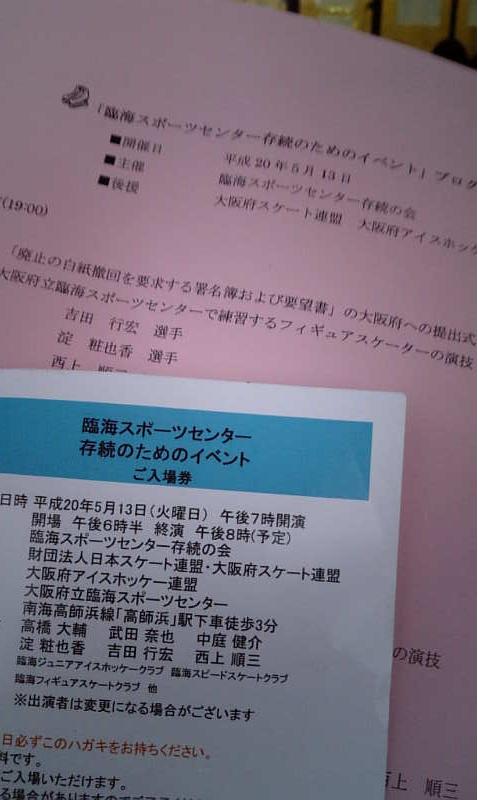 「臨海スポーツセンター存続のためのイベント」プログ
■開催日 平成20年5月13日
■主催 臨海スポーツセンター存続の会
■後援 大阪府スケート連盟 大阪府アイスホッケ
(19:00)
「廃止の白紙撤回を要求する署名簿および要望書」の大阪府への提出式
大阪府立臨海スポーツセンターで練習するフィギュアスケーターの演技
吉田 行宏 選手
淀 粧也香 選手
西上 順三
の演技
西上 順三
臨海スポーツセンター
存続のためのイベント
ご入場券
日時 平成20年5月13日(火曜日) 午後7時開演
開場 午後6時半 終演 午後8時(予定)
臨海スポーツセンター存続の会
財団法人日本スケート連盟・大阪府スケート連盟
大阪府アイスホッケー連盟
大阪府立臨海スポーツセンター
南海高師浜線「高師浜」駅下車徒歩3分
高橋 大輔 武田 奈也 中庭 健介
淀 粧也香 吉田 行宏 西上 順三
臨海ジュニアアイスホッケークラブ 臨海スピードスケートクラブ
臨海フィギュアスケートクラブ 他
※出演者は変更になる場合がございます
日必ずこのハガキをお持ちください。
料です。
ご入場いただけます。